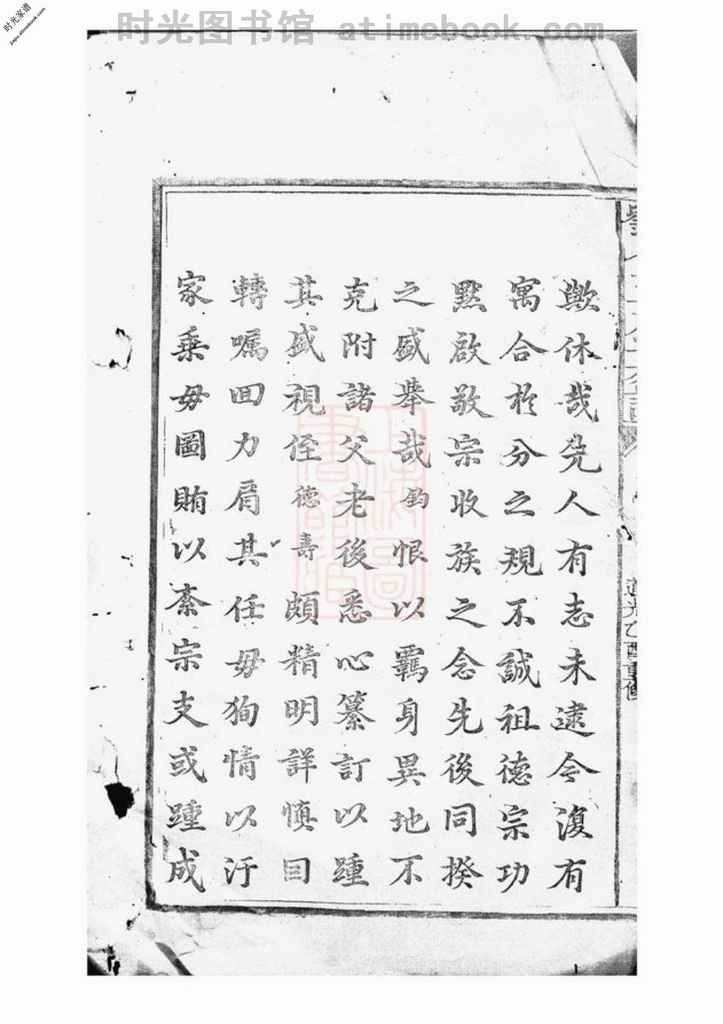 时光图书馆 atimebook.com
时光家谱
歟休哉先人有志未逮今復有
寓合於分之規不誠祖德宗功
黙啟敬宗收族之念先後同揆
之盛舉哉鈞恨以覊身異地不
克附諸父老後悉心纂訂以踵
其盛視侄德壽頗精明詳慎囙
轉囑囬力肩其任毋狥情以汙
家乗毋圖賄以紊宗支或踵成
道光乙酉重修